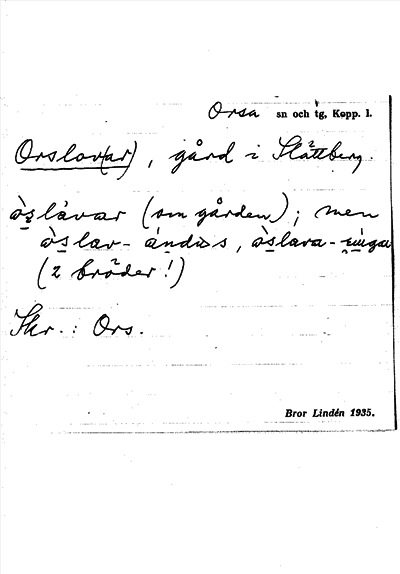 Orsa sn och tg, Kopp. l.
Orslov(ar), gård i Slättberg.
òs̱làvar (om gården); men
òs̱lav-ándɩs, òs̱lava-
(2 bröder!)
Skr.: Ors.
Bror Lindén 1935.